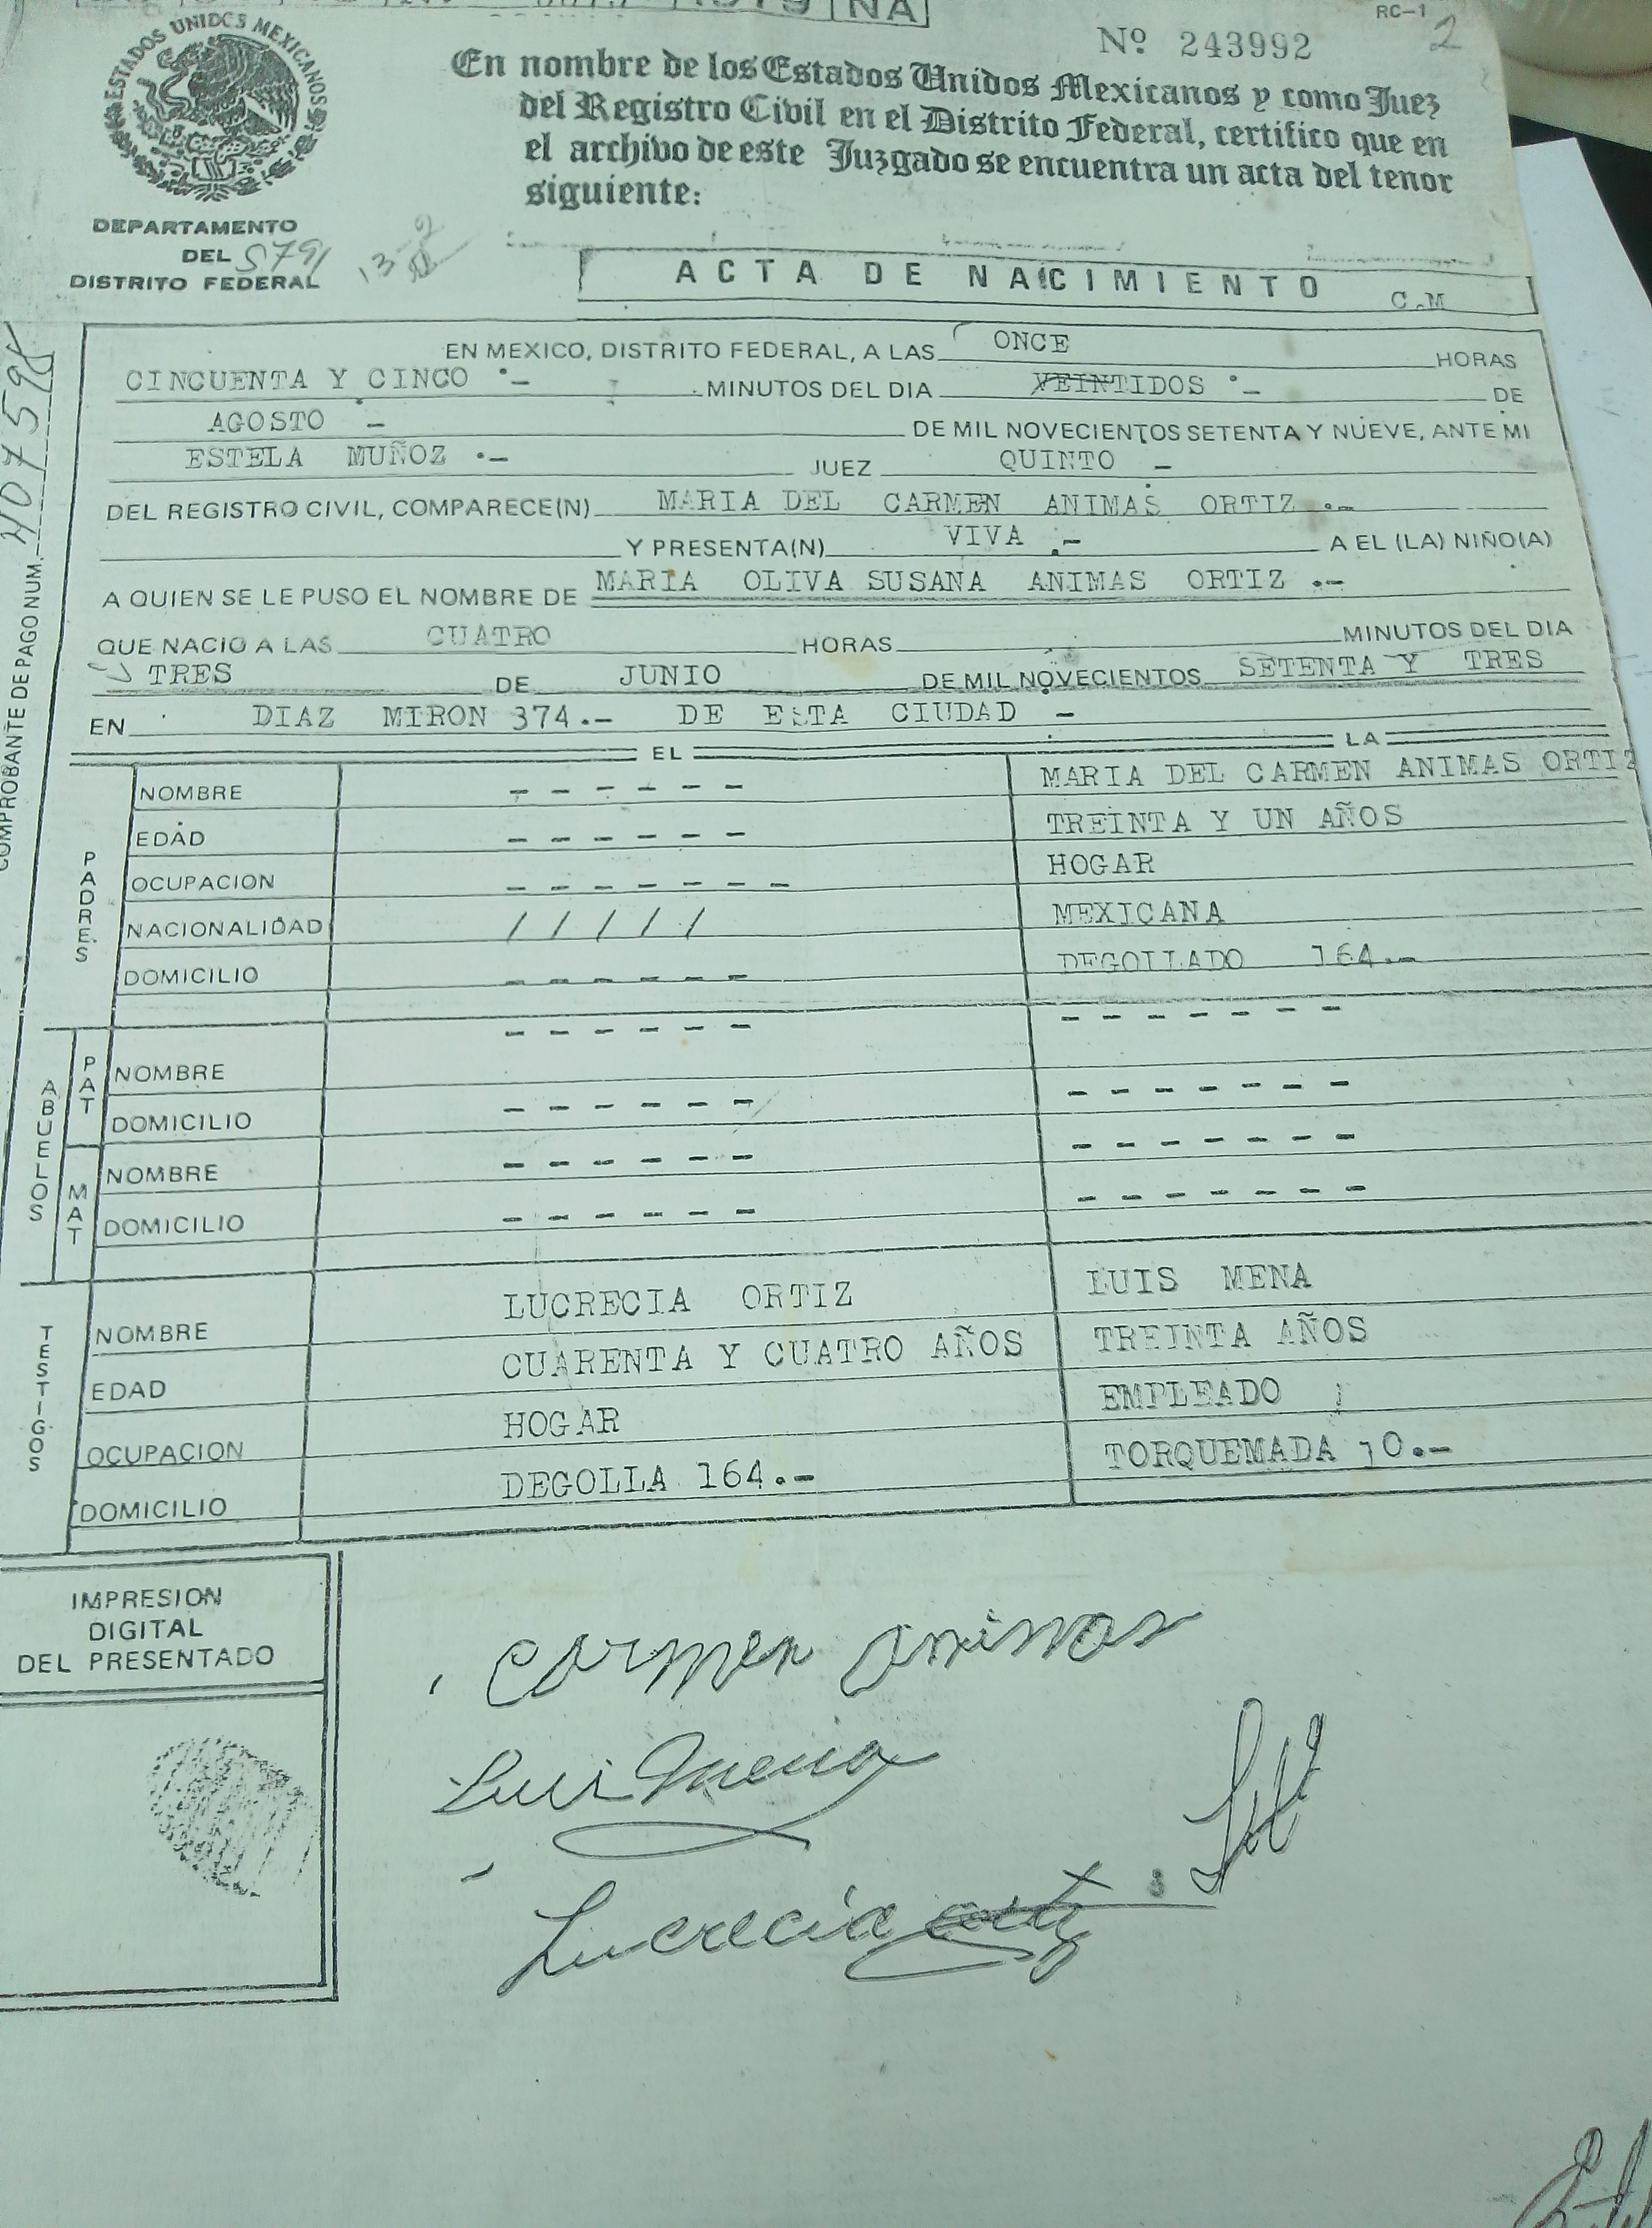 1979 NA
RC-1 2
Nº 243992
ESTADOS UNIDOS MEXICANOS
En nombre de los Estados Unidos Mexicanos y como Juez
del Registro Civil en el Distrito Federal, certifico que en
el archivo de este Juzgado se encuentra un acta del tenor
siguiente:
DEPARTAMENTO
DEL
DISTRITO FEDERAL
ACTA DE NACIMIENTO C.M
COMPROBANTE DE PAGO NUM.
EN MEXICO, DISTRITO FEDERAL, A LAS ONCE HORAS
CINCUENTA Y CINCO .- MINUTOS DEL DIA VEINTIDOS .- DE
AGOSTO - DE MIL NOVECIENTOS SETENTA Y NUEVE, ANTE MI
ESTELA MUÑOZ .- JUEZ QUINTO -
DEL REGISTRO CIVIL, COMPARECE(N) MARIA DEL CARMEN ANIMAS ORTIZ .-
Y PRESENTA(N) VIVA .- A EL (LA) NIÑO(A)
A QUIEN SE LE PUSO EL NOMBRE DE MARIA OLIVA SUSANA ANIMAS ORTIZ .-
QUE NACIO A LAS CUATRO HORAS MINUTOS DEL DIA
TRES DE JUNIO DE MIL NOVECIENTOS SETENTA Y TRES
EN DIAZ MIRON 374.- DE ESTA CIUDAD -
EL LA
PADRES
NOMBRE - - - - - - MARIA DEL CARMEN ANIMAS ORTIZ
EDAD - - - - - - TREINTA Y UN AÑOS
OCUPACION - - - - - - - HOGAR
NACIONALIDAD / / / / / MEXICANA
DOMICILIO - - - - - - DEGOLLADO 164.-
ABUELOS
PAT
NOMBRE - - - - - - - - - - - - -
DOMICILIO - - - - - - - - - - - - -
MAT
NOMBRE - - - - - - - - - - - - -
DOMICILIO - - - - - - - - - - - - -
TESTIGOS
NOMBRE LUCRECIA ORTIZ LUIS MENA
EDAD CUARENTA Y CUATRO AÑOS TREINTA AÑOS
OCUPACION HOGAR EMPLEADO
DOMICILIO DEGOLLA 164.- TORQUEMADA 70.-
IMPRESION
DIGITAL
DEL PRESENTADO
Carmen Animas
Luis Mena
Lucrecia Ortiz